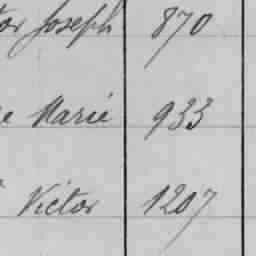 Joseph 870
Marie 933
Victor 1207